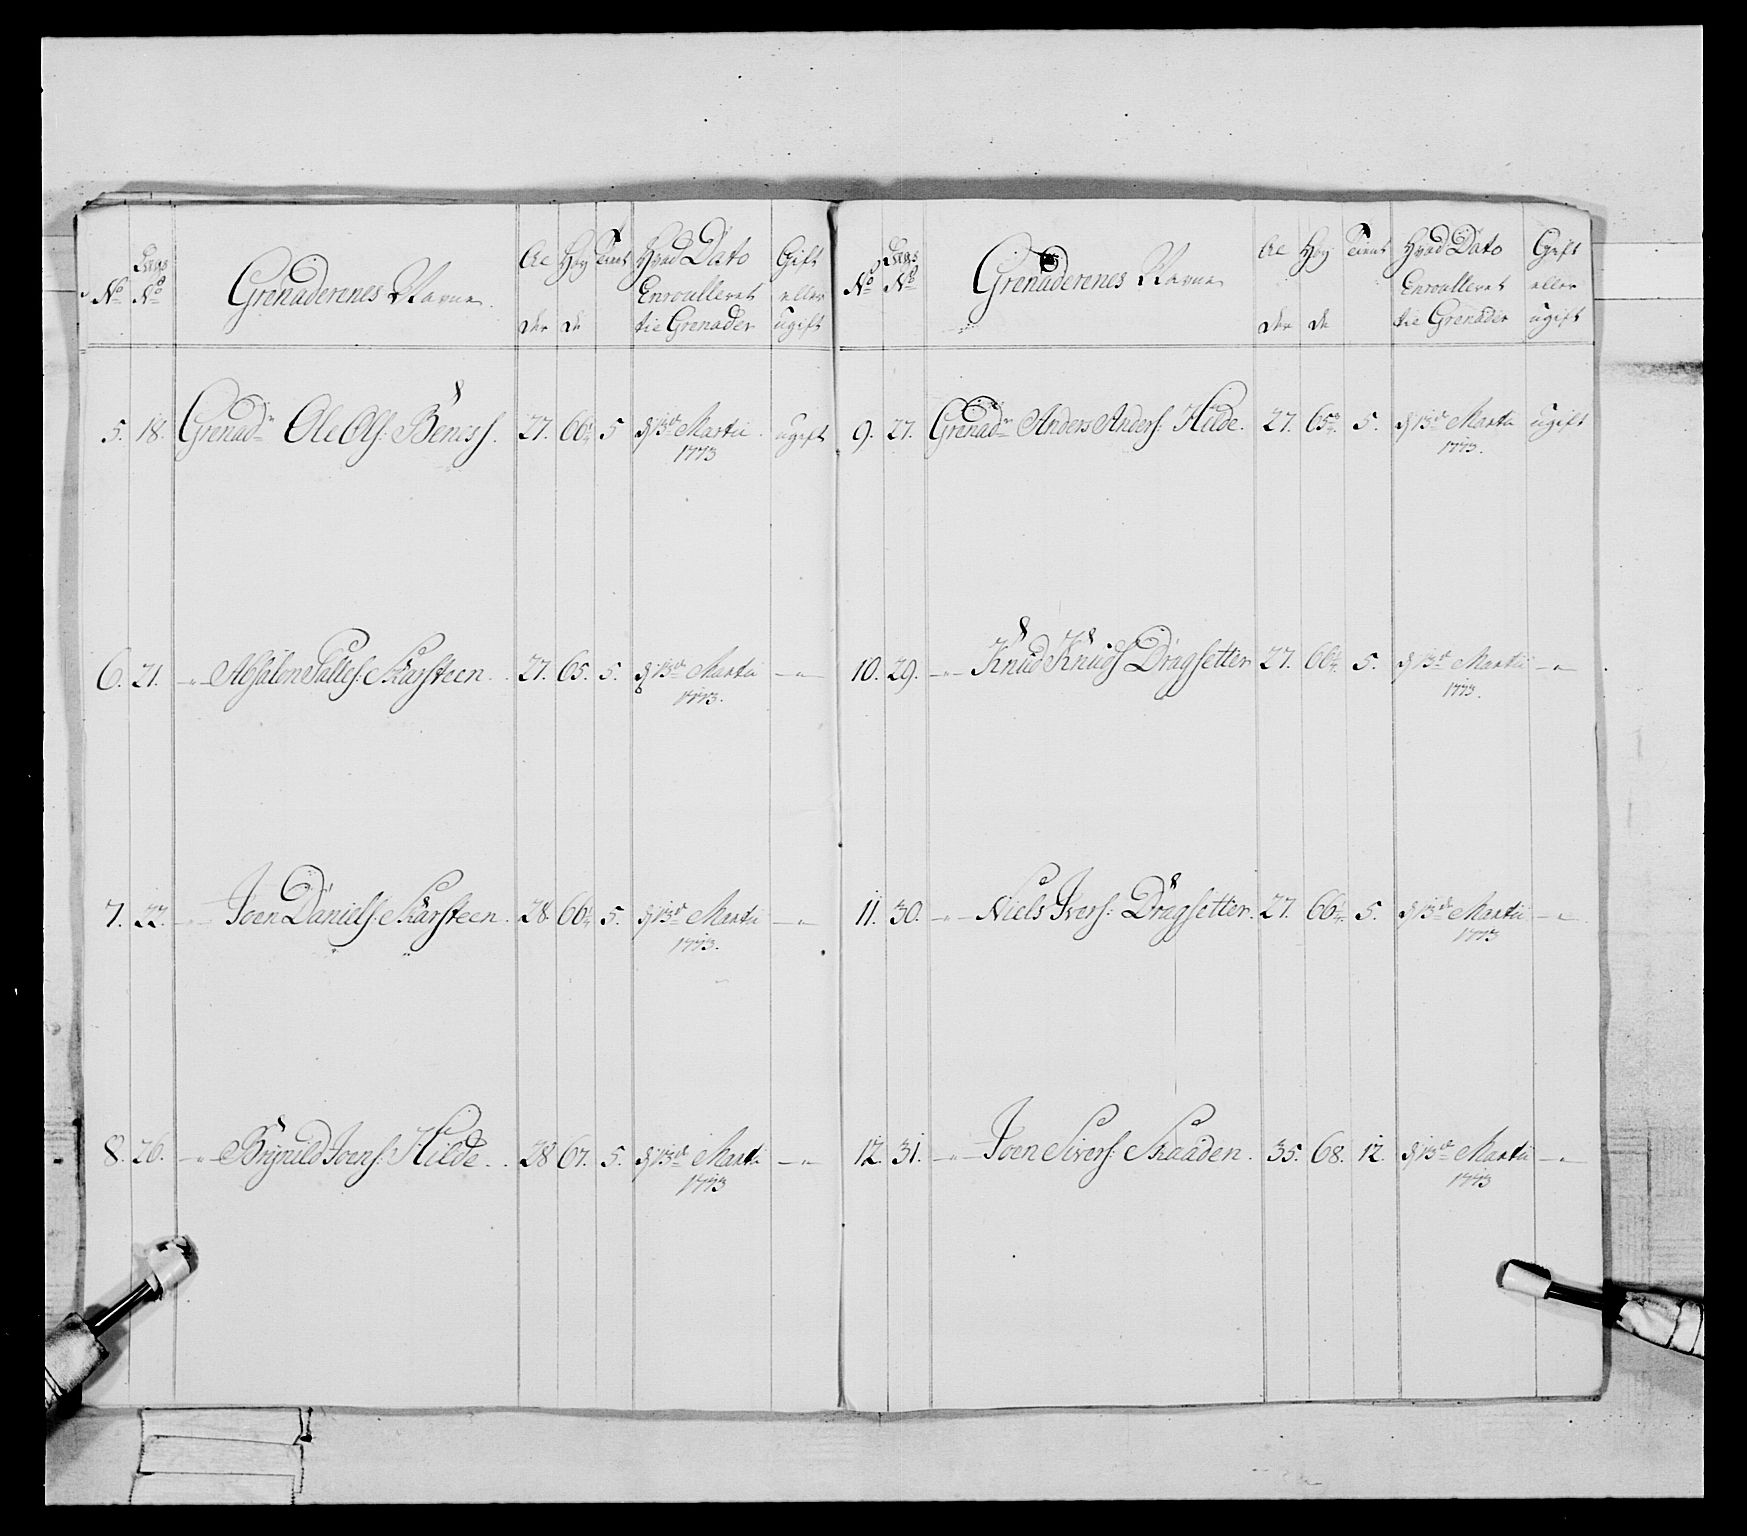 No Lægs No Grenaderenes Navne Al der Høy de Tient Hvad Dato Enroulleret tie Grenader Gift eller ugift
5. 18. Grenadr Ole Ols: Beness. 27. 66 5 d 13de Martii 1773 ugift
6. 21. -"- Absalon Palles: Skarsteen. 27. 65. 5. d 13de Martii 1773. -"-
7. 22. -"- Joen Daniels: Skarsteen. 28. 66 5. d 13de Martii 1773. -"-
8. 26. -"- Brynild Joens: Hilde. 28 67. 5. d 13de Martii 1773 -"-
No Lægs No Grenaderenes Navne Al der Høy de Tient Hvad Dato Enroulleret tie Grenader Gift eller ugift
9. 27. Grenadr Anders Anders: Hilde. 27. 65 5. d 13de Martii 1773. ugift
10. 29. -"- Knud Knuds Dragsetter 27. 66 5. d 13de Martii 1773. -"-
11. 30. -"- Niels Ivers: Dragsetter. 27. 66 5. d 13de Martii 1773 -"-
12. 31. -"- Joen Sivers: Skaaden. 35. 68. 12. d 13de Martii 1773 -"-